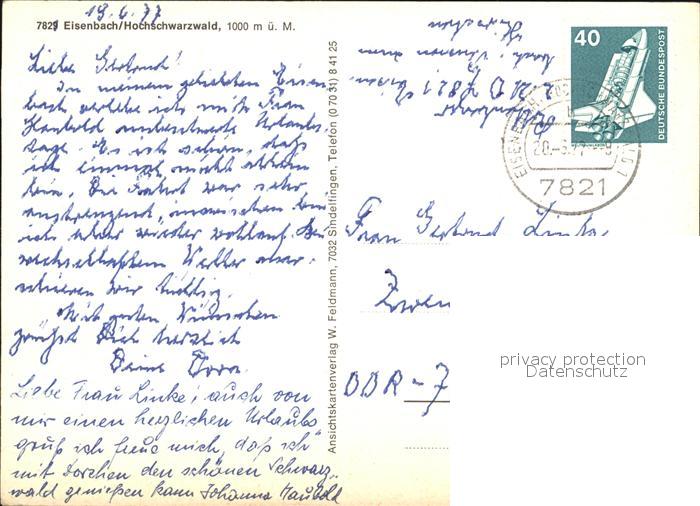 19.6.77
7829 Eisenbach/Hochschwarzwald, 1000 m ü. M.
Liebe Gertrud!
In meinem geliebten Eisen-
bach verlebe ich mit Frau
Haubold unbeschwerte Urlaubs-
tage. Es ist schön, daß
ich einmal nicht allein
bin. Die Fahrt war sehr
anstrengend, inzwischen bin
ich aber wieder wohlauf. Bei
wechselhaftem Wetter
wir tüchtig.
Mit guten Wünschen
grüßt Dich herzlich
Deine Dora.
Liebe Frau Linke, auch von
mir einen herzlichen Urlaubs
gruß ich freue mich, daß ich
mit Dorchen den schönen Schwarz-
wald genießen kann Johanna Haubold
Ansichtskartenverlag W. Feldmann, 7032 Sindelfingen, Telefon (0 70 31) 8 41 25
40
DEUTSCHE BUNDESPOST
EISENBACH
20.-6.77
7821
Frau Gertrud Linke
Zwen
DDR - 7
privacy protection
Datenschutz